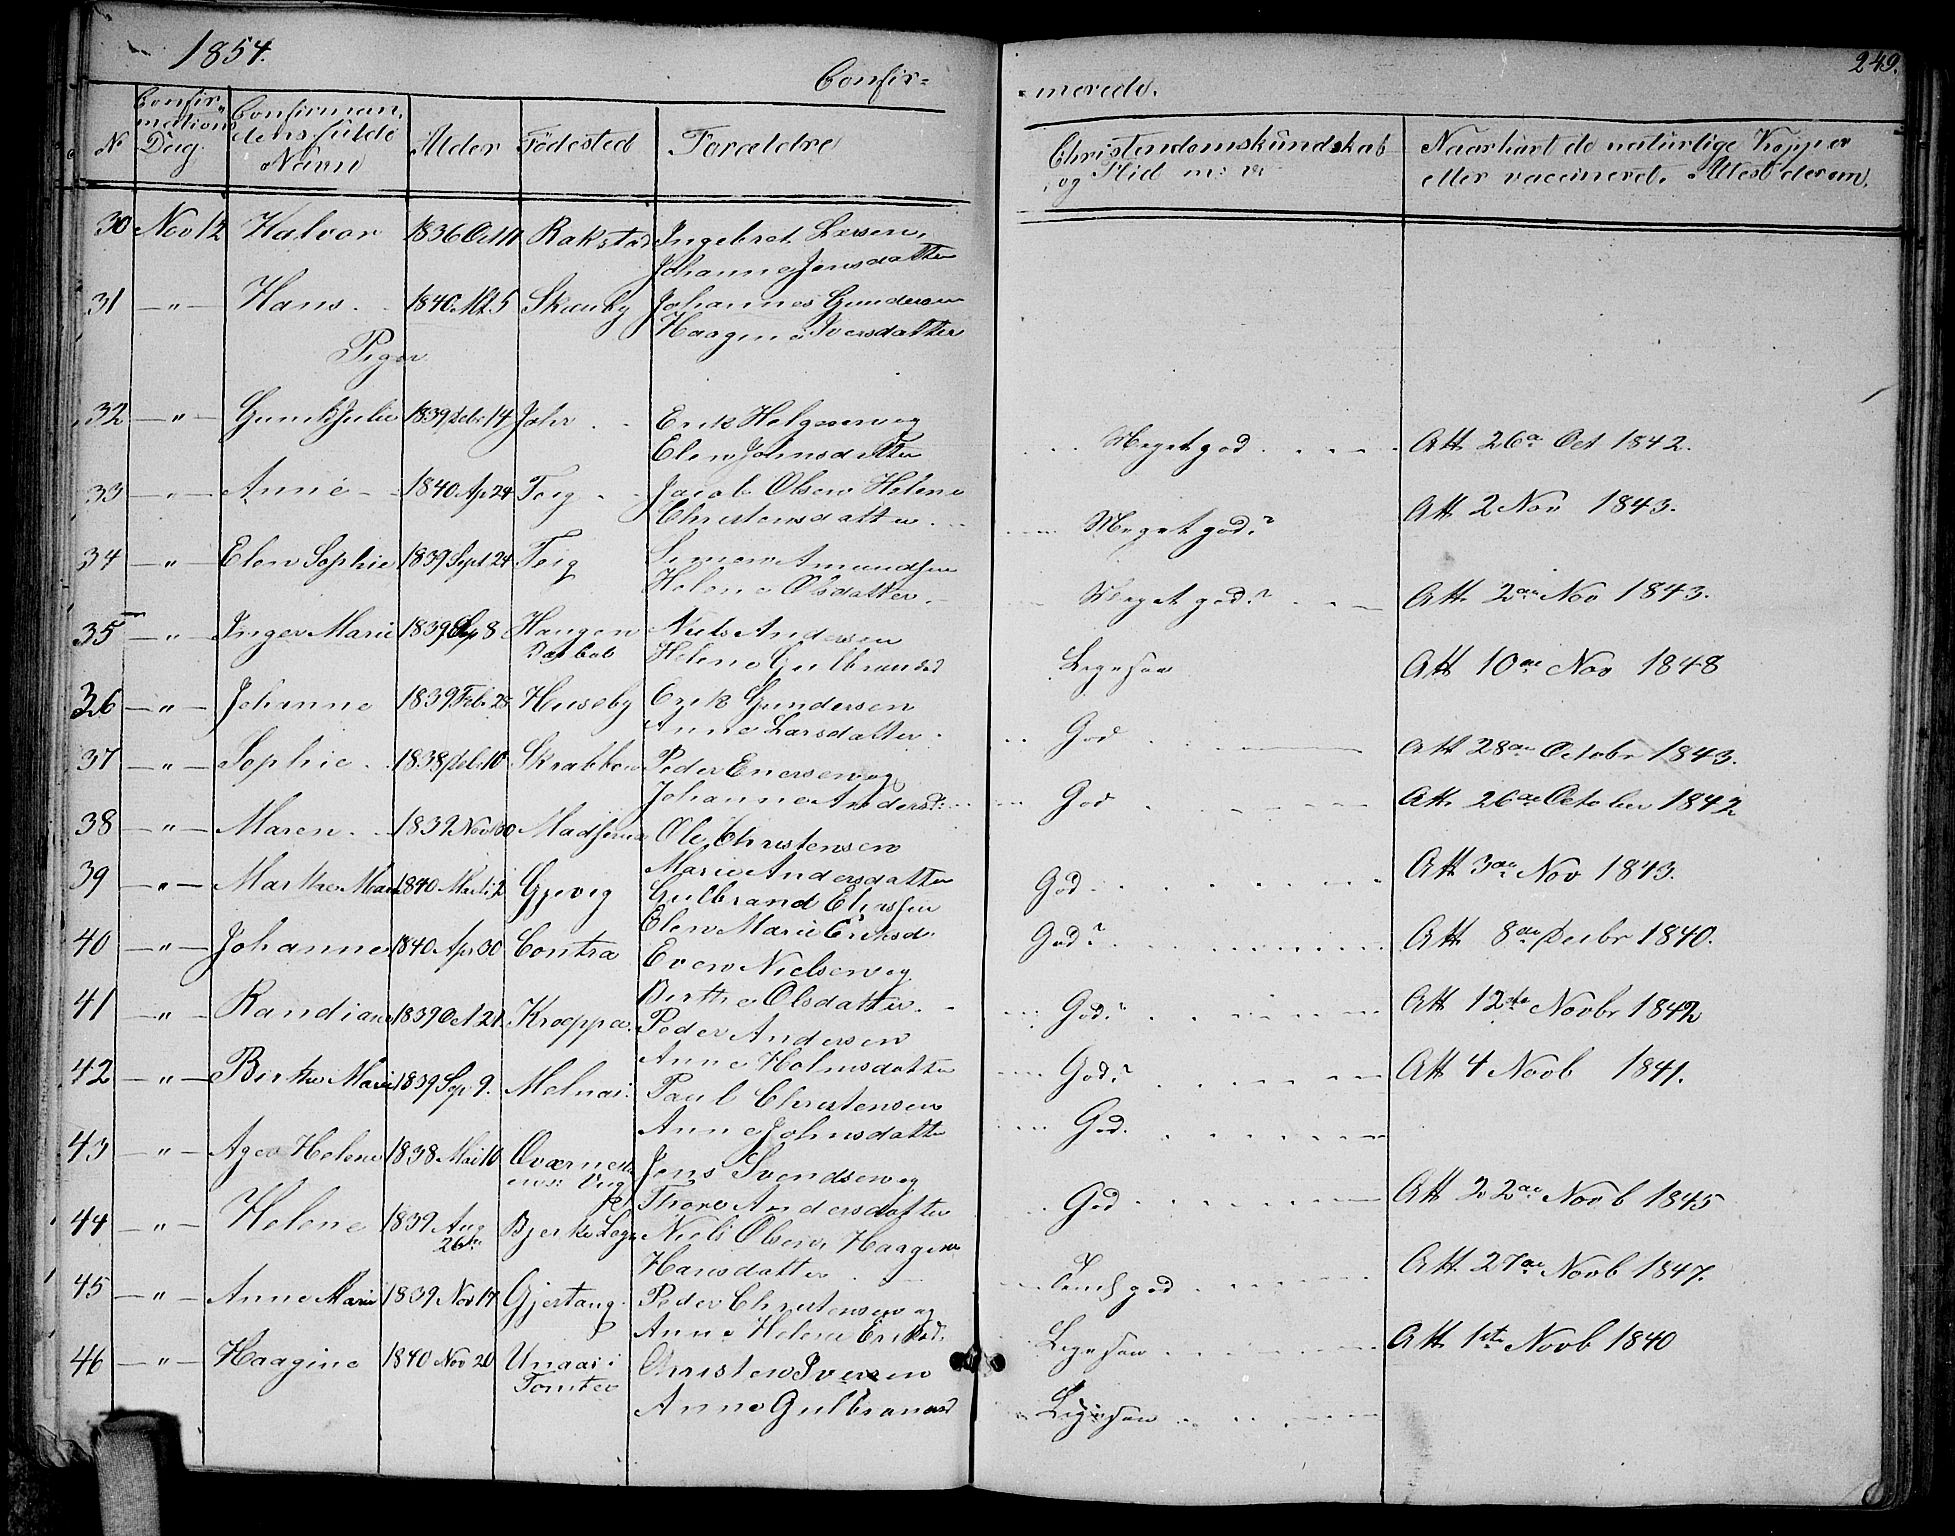 1854.
Confir=
Confir-
mations
Dag.
N
Confirman-
dens fulde
Navn
Alder
Fødested
Forældre
30 Nov 12 Halvor 1836 Oct 11 Rakstad Ingebret Larsen,
Johanne Jensdatter
31 — " — Hans. 1840. 5 Skamby Johannes Gundersen
Haagine Iversdatter
Piger
32 — " — Julie 1839 14 Johr Erik Helgesen og
Elen Johnsdatter
33 — " — Anne 1840 Ap 24 Teig Jacob Olsen Helene
Christensdatter.
34 — " — Elen Sophie 1839 Sept 24 Teig Simen Amundsen
Helene Olsdatter.
35 — " — Inger Marie 1839 8 Haugen Niels Andersen
Helene Gulbransd
36 — " — Johanne 1839 Feb 28 Huseby Erik Gundersen
Anne Larsdatter.
37 — " — Sophie. 1838 10 Peder Enersen og
Johanne Andersd:
38 — " — Maren. 1839 Nov 30 Ole Christensen
Marie Andersdatter
39 — " — Marthe Mari 1840 Gjøvig Gulbrand
Elen Marie Eriksd.
40 — " — Johanne 1840 Apr 30 Contra Even Nielsen og
Birthe Olsdatter.
41 — " — Randiane 1839 Oct 21 Kræppa. Peder Andersen
Anne Holmsdatter
42 — " — Birthe Marie 1839 Sep 9. Paul Christensen
Anne Johnsdatter
43 — " — Helene 1838 Mai 10 Jens Svendsen og
Thore Andersdatter
44 — " — Helene 1839 Aug
26de Bjerke Niels Olsen, Haagine
Hansdatter.
45 — " — Anne Marie 1839 Nov 17 Gjestang. Peder Christensen og
Anne Helene Eriksd.
46 — " — Haagine 1840 Nov 20 Unaas i
Tomter Christen Iversen
Anne Gulbransd
249.
merede.
Christendomskundskab
og Flid m: v:
Naar havt de naturlige Kopper
eller vaccineret. Attest derom.
Meget god Att 26de Oct 1842.
Meget god? Att 2 Nov 1843.
Meget god? Att 2den Nov 1843.
Ligesaa Att 10de Nov 1848
God Att 28de Octobr 1843.
God Att 26de October 1842
God Att 3die Nov 1843.
God? Att 8de Decbr 1840.
God? Att 12te Novbr 1842
God? Att 4 Novb 1841.
God.
God Att 22de Novb 1845
god Att 27de Novb 1847.
Ligesaa Att 1ste Novb 1840
Ligesaa